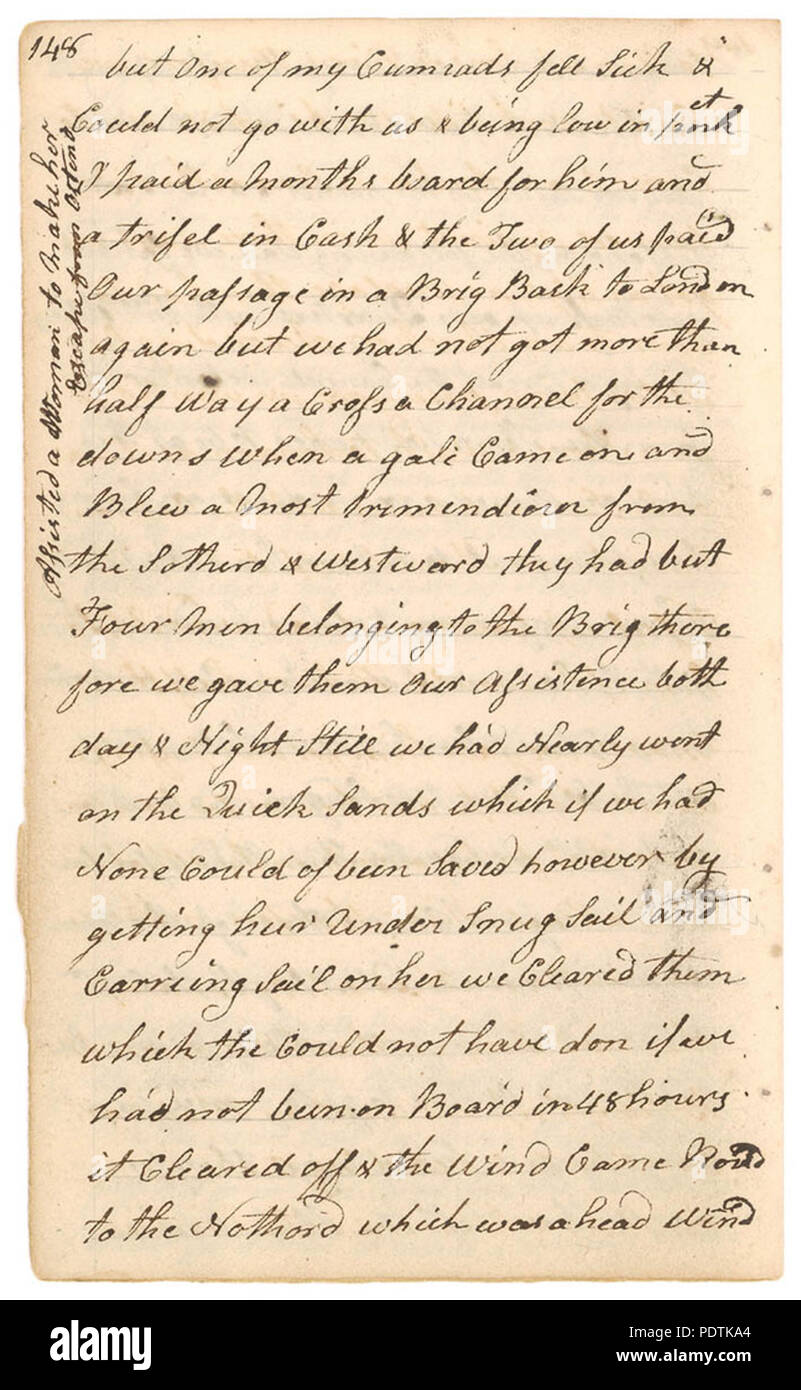 148
but One of my Cumrads fell Sick &
Could not go with us & being low in pocket
I paid a Months board for him and
a trifel in Cash & the Two of us paid
Our passage in a Brig Back to London
again but we had not got more than
half way a Cross a Channel for the
downs When a gale Came on and
Blew a Most from
the Sotherd & Westword they had but
Four Men belonging to the Brig there
fore we gave them Our Assistence both
day & Night Still we had Nearly went
on the Quick Sands which if we had
None Could of been Saved however by
getting hur Under Snug Sail and
Carriing Sail on her we Cleared them
which the Could not have don if we
had not been on Board in 48 hours
it Cleared off & the Wind Came Round
to the Nothord which was a head Wind
Assisted a Woman to Make her
Escape from Ostend
alamy
alamy
Image ID: PDTKA4
www.alamy.com